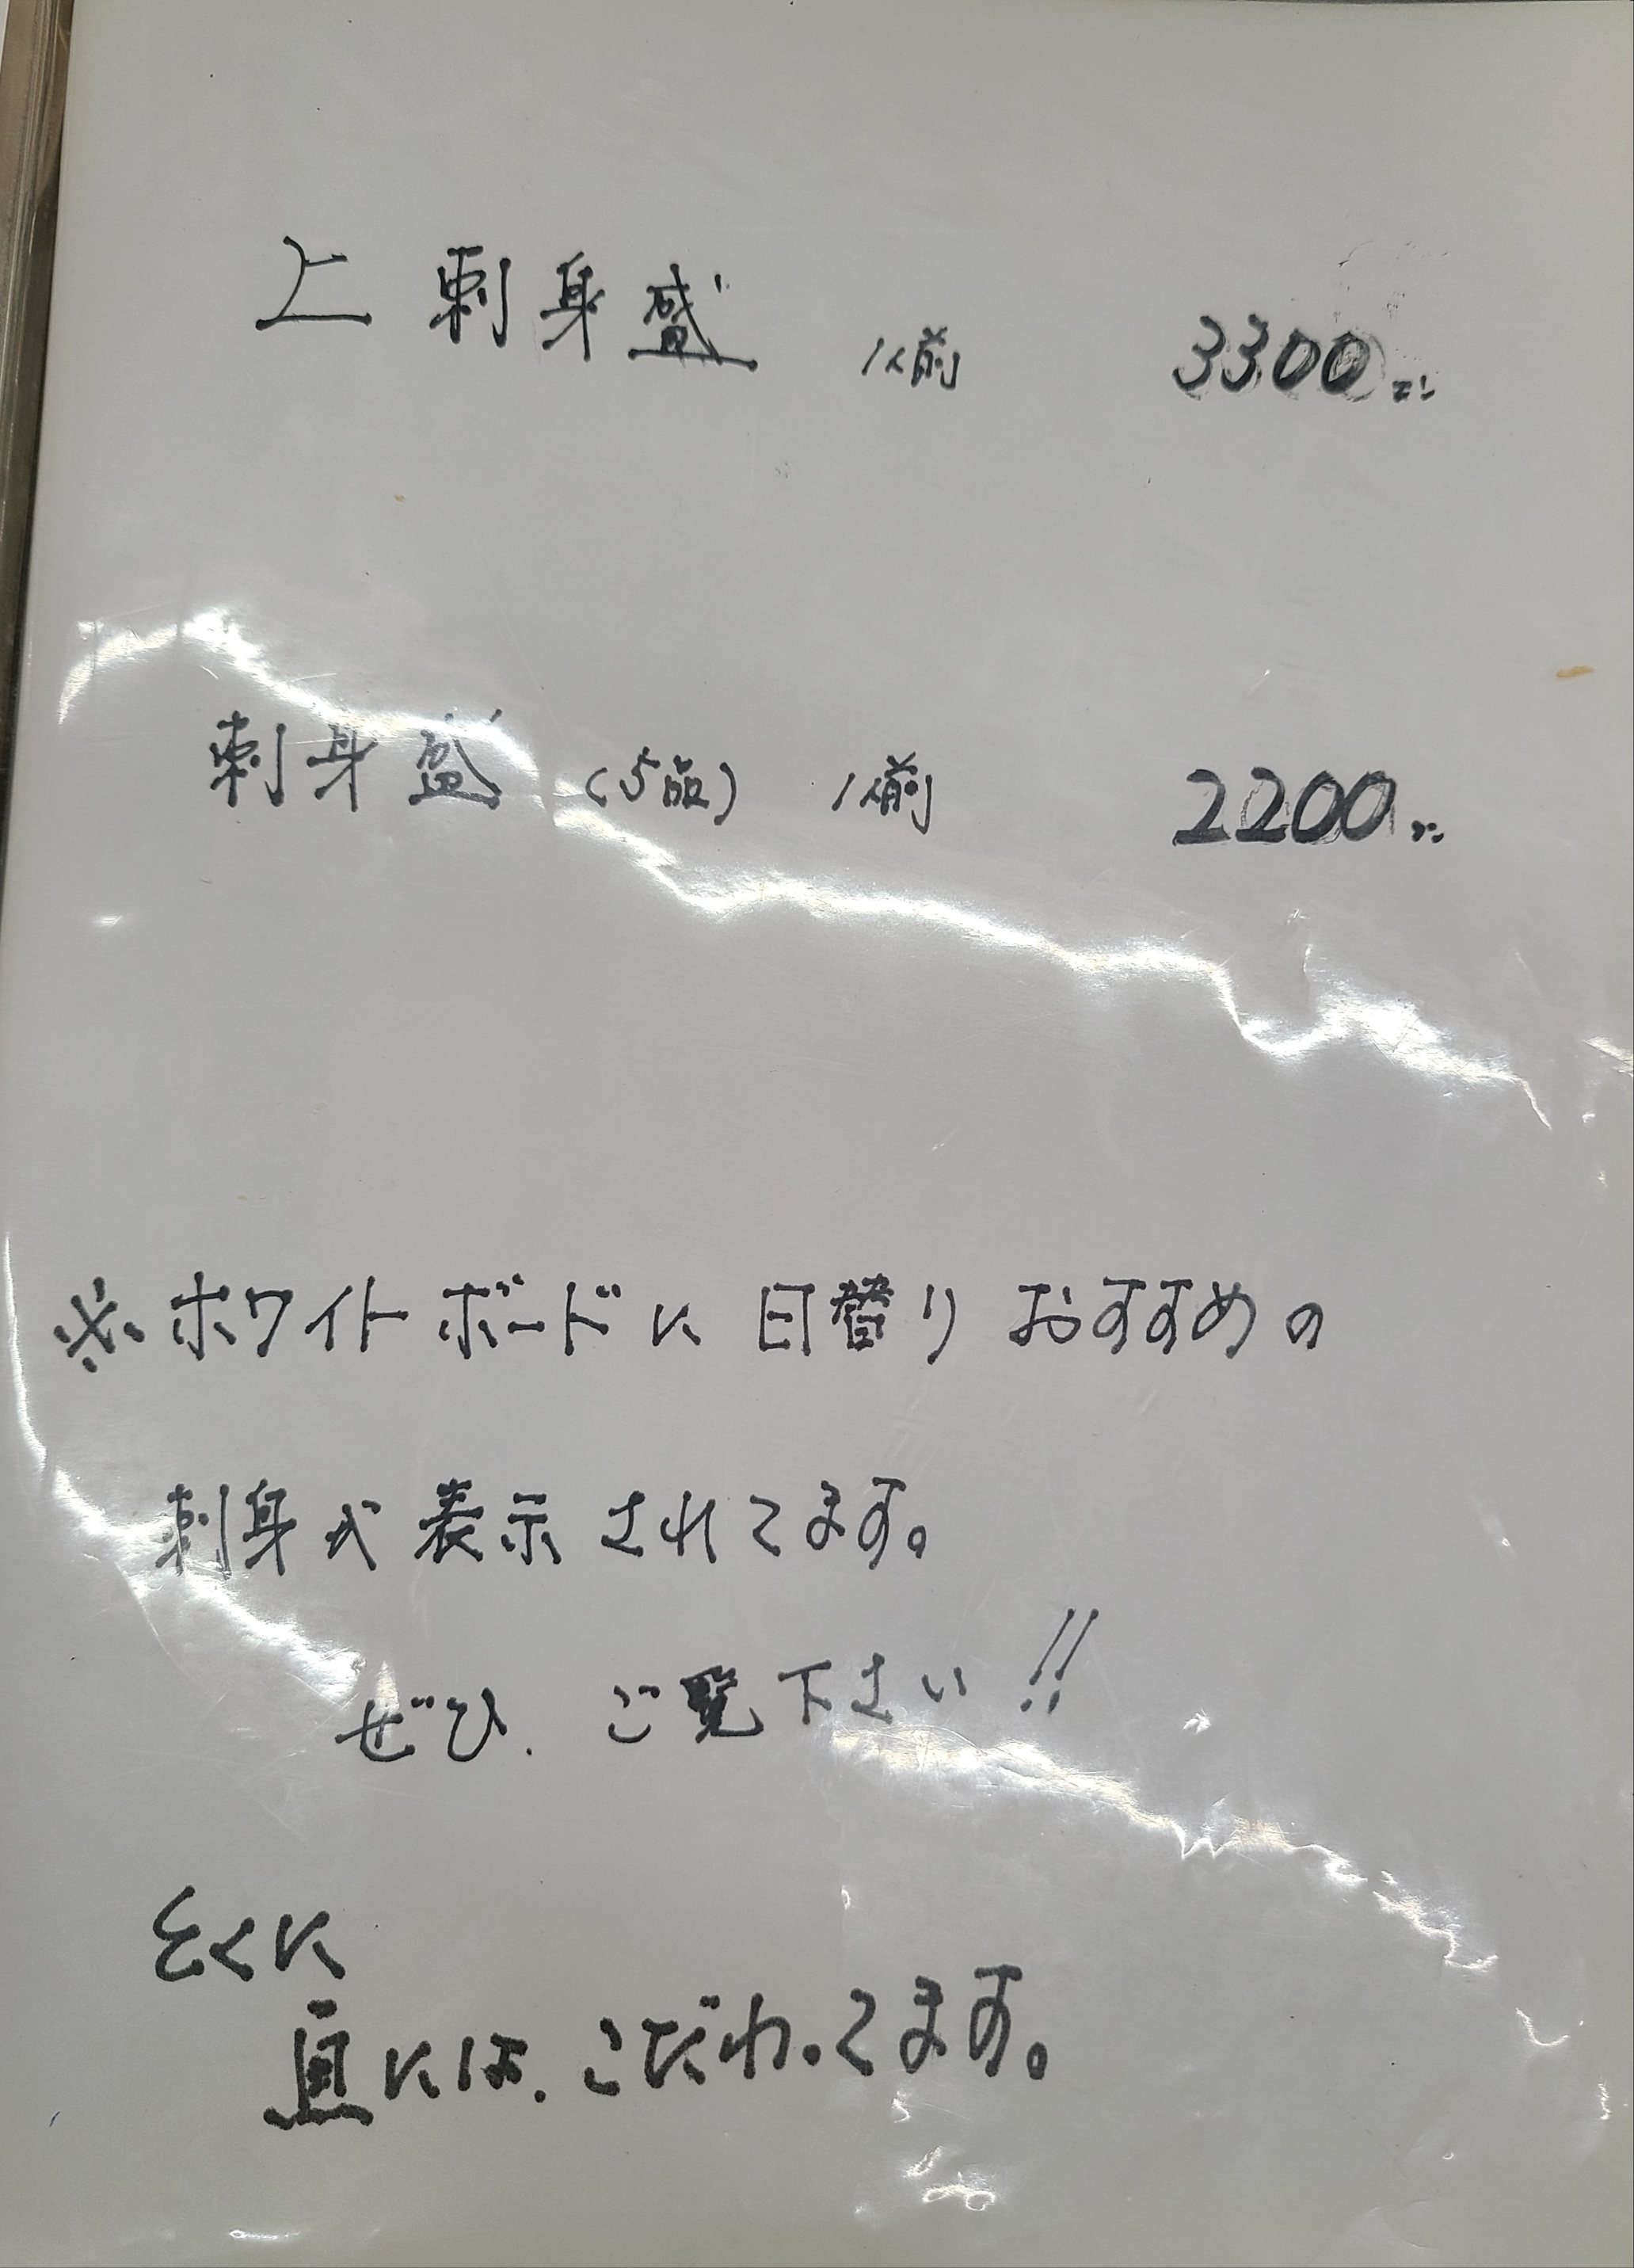 上刺身盛 1人前 3300
刺身盛 (5品) 1人前 2200
※ホワイトボードに日替りおすすめの
刺身が表示されてます。
ぜひ、ご覧下さい!!
とくに
魚には、こだわってます。